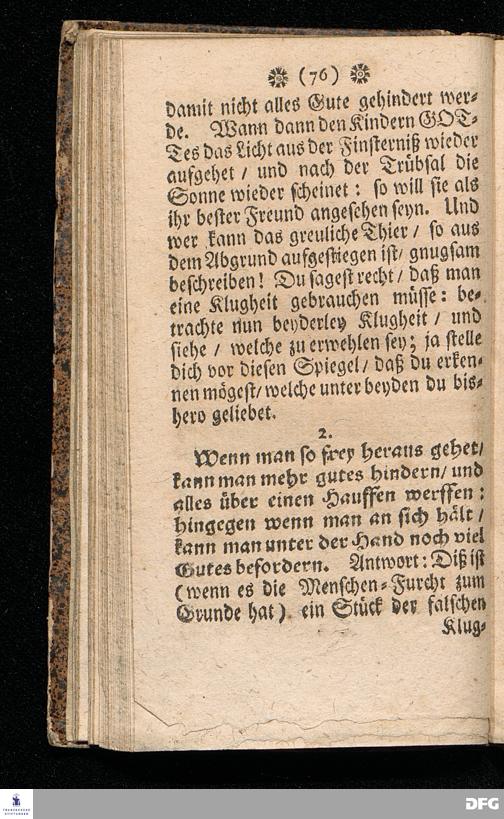 (76)
damit nicht alles Gute gehindert wer-
de. Wann dann den Kindern GOT-
Tes das Licht aus der Finsterniß wieder
aufgehet / und nach der Trübsal die
Sonne wieder scheinet: so will sie als
ihr bester Freund angesehen seyn. Und
wer kann das greuliche Thier / so aus
dem Abgrund aufgestiegen ist / gnugsam
beschreiben! Du sagest recht / daß man
eine Klugheit gebrauchen müsse: be-
trachte nun beyderley Klugheit / und
siehe / welche zu erwehlen sey; ja stelle
dich vor diesen Spiegel / daß du erken-
nen mögest / welche unter beyden du bis-
hero geliebet.
2.
Wenn man so frey heraus gehet /
kann man mehr gutes hindern / und
alles über einen Hauffen werffen:
hingegen wenn man an sich hält /
kann man unter der Hand noch viel
Gutes befordern. Antwort: Diß ist
(wenn es die Menschen-Furcht zum
Grunde hat) ein Stück der falschen
Klug-
FRANCKESCHE
STIFTUNGEN
DFG